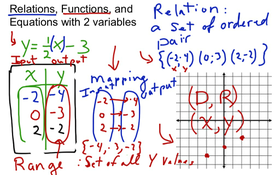 Relations, Functions, and
Equations with 2 variables
y = 1/2(x) - 3
Input output
x y
-2 -4
0 -3
2 -2
Range : Set of all y values
mapping
Input output
-2 → -4
0 → -3
2 → -2
{-4, -3, -2}
Relation:
a set of ordered
pair
{(-2,-4) (0,-3) (2,-2)}
x y
(D, R)
(X, Y)